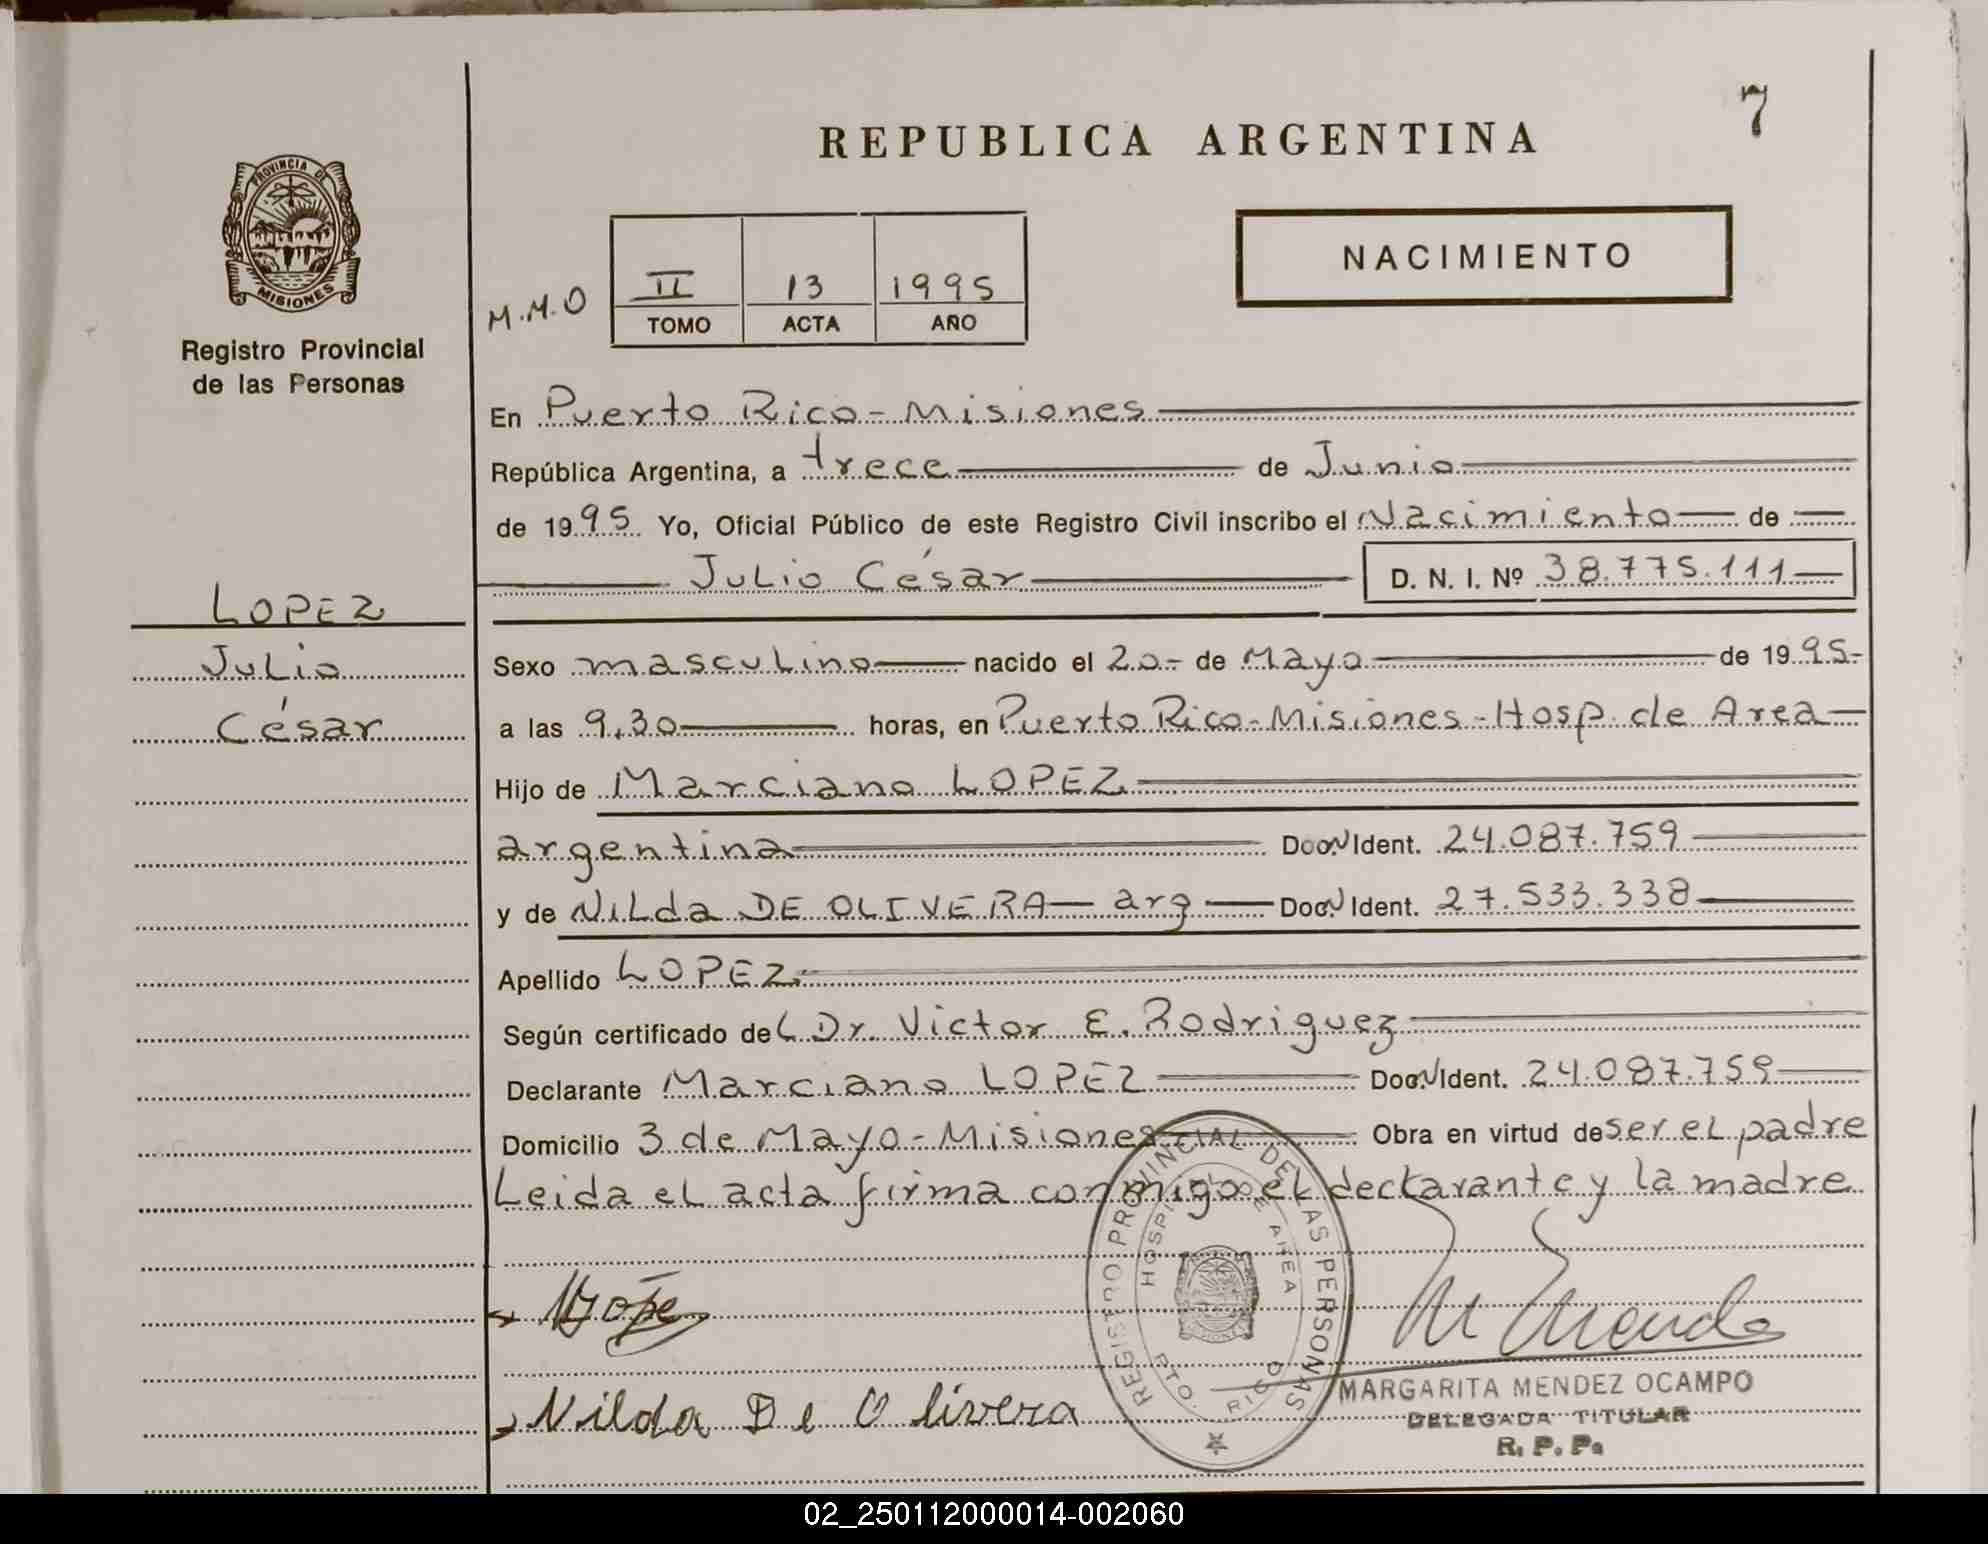 7
REPUBLICA ARGENTINA
PROVINCIA DE
MISIONES
Registro Provincial
de las Personas
NACIMIENTO
M.M.O
II 13 1995
TOMO ACTA AÑO
En Puerto Rico - Misiones
República Argentina, a trece de Junio
de 1995. Yo, Oficial Público de este Registro Civil inscribo el Nacimiento de
Julio César D. N. I. Nº 38.775.111
LOPEZ
Julio
César
Sexo masculino nacido el 20.- de Mayo de 1995-
a las 9,30 horas, en Puerto Rico - Misiones - Hosp. de Area
Hijo de Marciano LOPEZ
argentina Doc. N Ident. 24.087.759
y de Nilda DE OLIVERA - arg Doc. N Ident. 27.533.338
Apellido LOPEZ
Según certificado del Dr. Victor E. Rodriguez
Declarante Marciano LOPEZ Doc. N Ident. 24.087.759
Domicilio 3 de Mayo - Misiones Obra en virtud de ser el padre
Leida el acta firma conmigo el declarante y la madre
REGISTRO PROVINCIAL DE LAS PERSONAS
HOSPITAL DE AREA
PTO. RICO
Nilda De Olivera
MARGARITA MENDEZ OCAMPO
DELEGADA TITULAR
R. P. P.
02_250112000014-002060